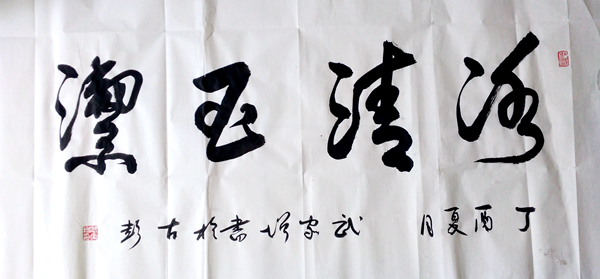 冰清玉潔
丁酉夏月 武家增書於古彭